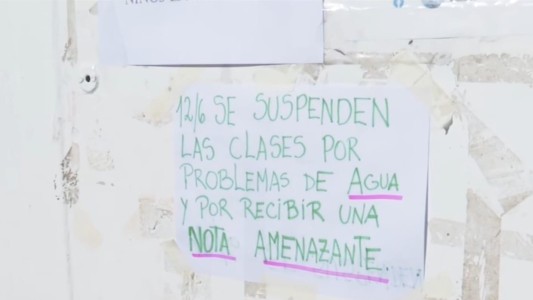 12/6 SE SUSPENDEN
LAS CLASES POR
PROBLEMAS DE AGUA
Y POR RECIBIR UNA
NOTA AMENAZANTE.